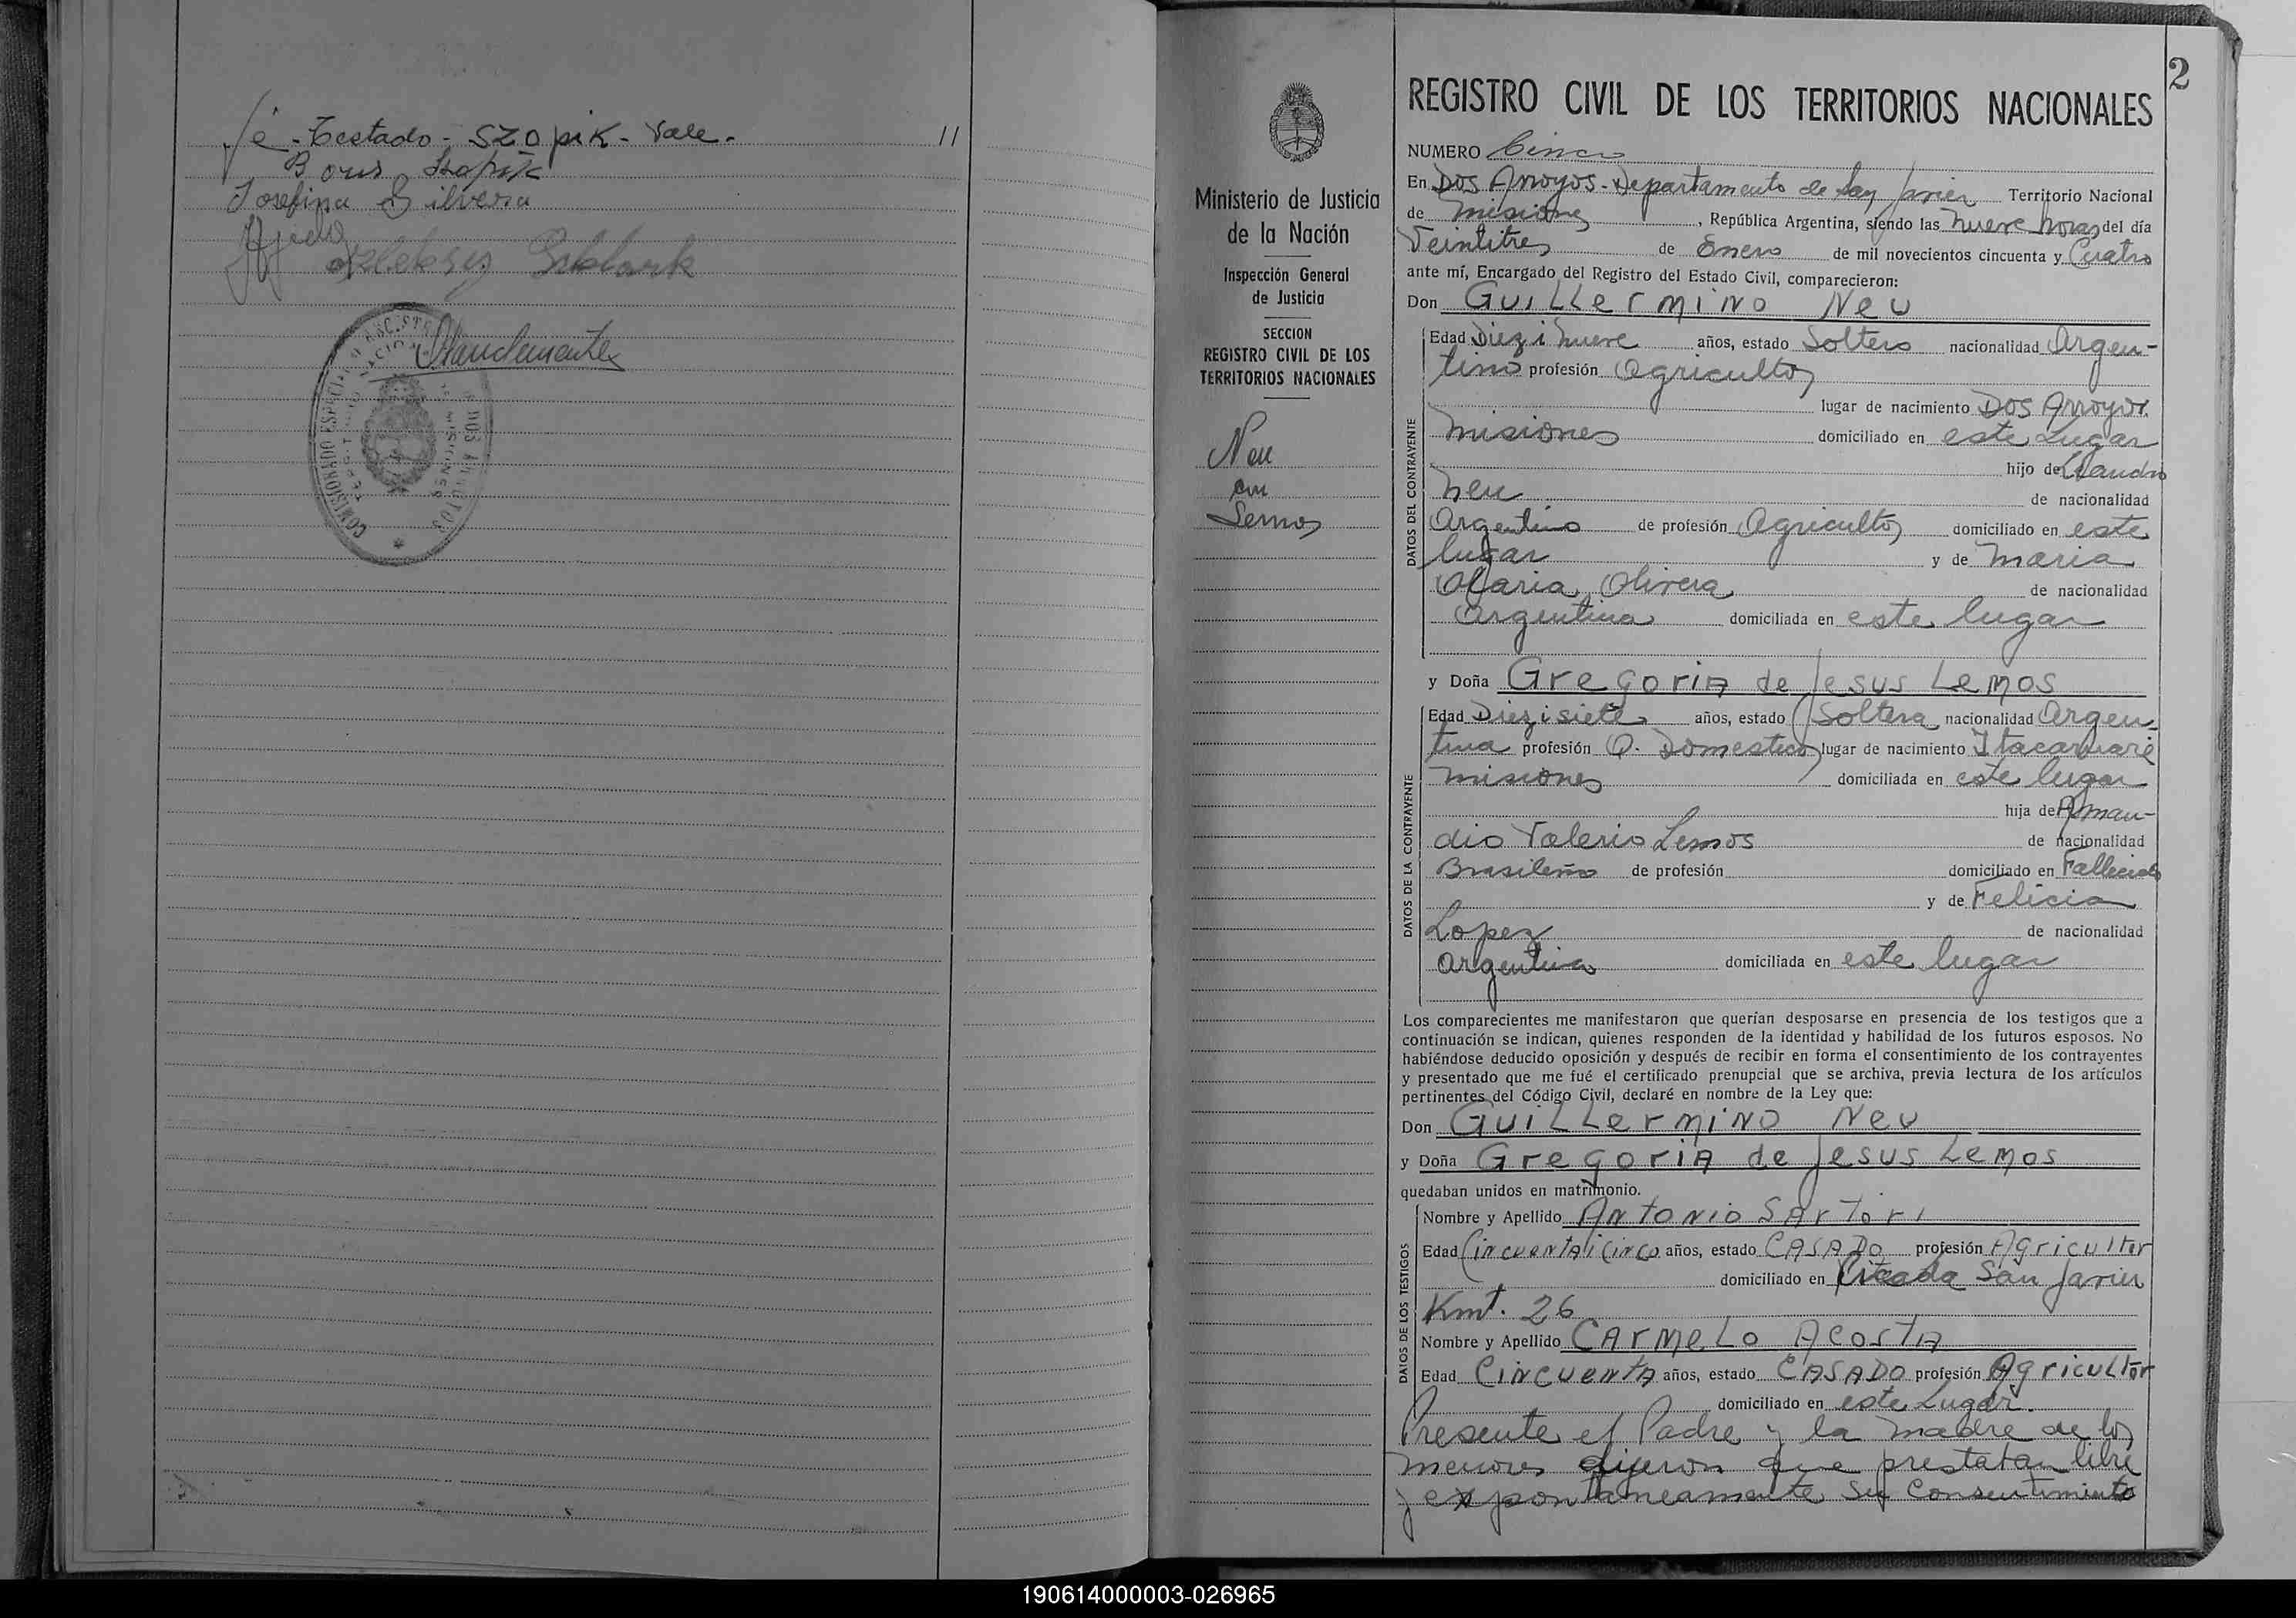 fé - Testado - SZOpiK - Vale.
Boris Szopik
Josefina Silveira
COMISIONADO ESPECIAL
MISIONES
REGISTRO CIVIL DE LOS TERRITORIOS NACIONALES
2
Ministerio de Justicia
de la Nación
Inspección General
de Justicia
SECCION
REGISTRO CIVIL DE LOS
TERRITORIOS NACIONALES
Neu
con
Lemos
NUMERO Cinco
En Dos Arroyos - Departamento de San Javier Territorio Nacional
de Misiones, República Argentina, siendo las nueve horas del día
Veintitres de Enero de mil novecientos cincuenta y Cuatro
ante mí, Encargado del Registro del Estado Civil, comparecieron:
Don GuiLLermiNo Neu
DATOS DEL CONTRAYENTE
Edad Diez i nueve años, estado Soltero nacionalidad Argen-
tino profesión Agricultor
lugar de nacimiento Dos Arroyos
Misiones domiciliado en este Lugar
hijo de Leandro
Neu de nacionalidad
Argentino de profesión Agricultor domiciliado en este
lugar y de Maria
Olivera de nacionalidad
Argentina domiciliada en este lugar
y Doña GregoriA de Jesus Lemos
DATOS DE LA CONTRAYENTE
Edad Diez i siete años, estado Soltera nacionalidad Argen-
tina profesión Q. Domestico lugar de nacimiento Itacaruaré
Misiones domiciliada en este lugar
hija de Aman-
dio Valerio Lemos de nacionalidad
Brasileño de profesión domiciliado en Fallecido
y de Felicia
Lopez de nacionalidad
Argentina domiciliada en este lugar
Los comparecientes me manifestaron que querían desposarse en presencia de los testigos que a
continuación se indican, quienes responden de la identidad y habilidad de los futuros esposos. No
habiéndose deducido oposición y después de recibir en forma el consentimiento de los contrayentes
y presentado que me fué el certificado prenupcial que se archiva, previa lectura de los artículos
pertinentes del Código Civil, declaré en nombre de la Ley que:
Don GuiLLermiNo Neu
y Doña GregoriA de Jesus Lemos
quedaban unidos en matrimonio.
DATOS DE LOS TESTIGOS
Nombre y Apellido ANtoNio SArtori
Edad CincuentA i Cinco años, estado CASADO profesión Agricultor
domiciliado en Picada San Javier
Kmt. 26
Nombre y Apellido CArmeLo AcostA
Edad CiNcuentA años, estado CASADO profesión AgricuLtor
domiciliado en este Lugar.
Presente el Padre y la madre de los
menores dijeron que prestaban libre
y expontaneamente su Consentimiento
190614000003-026965